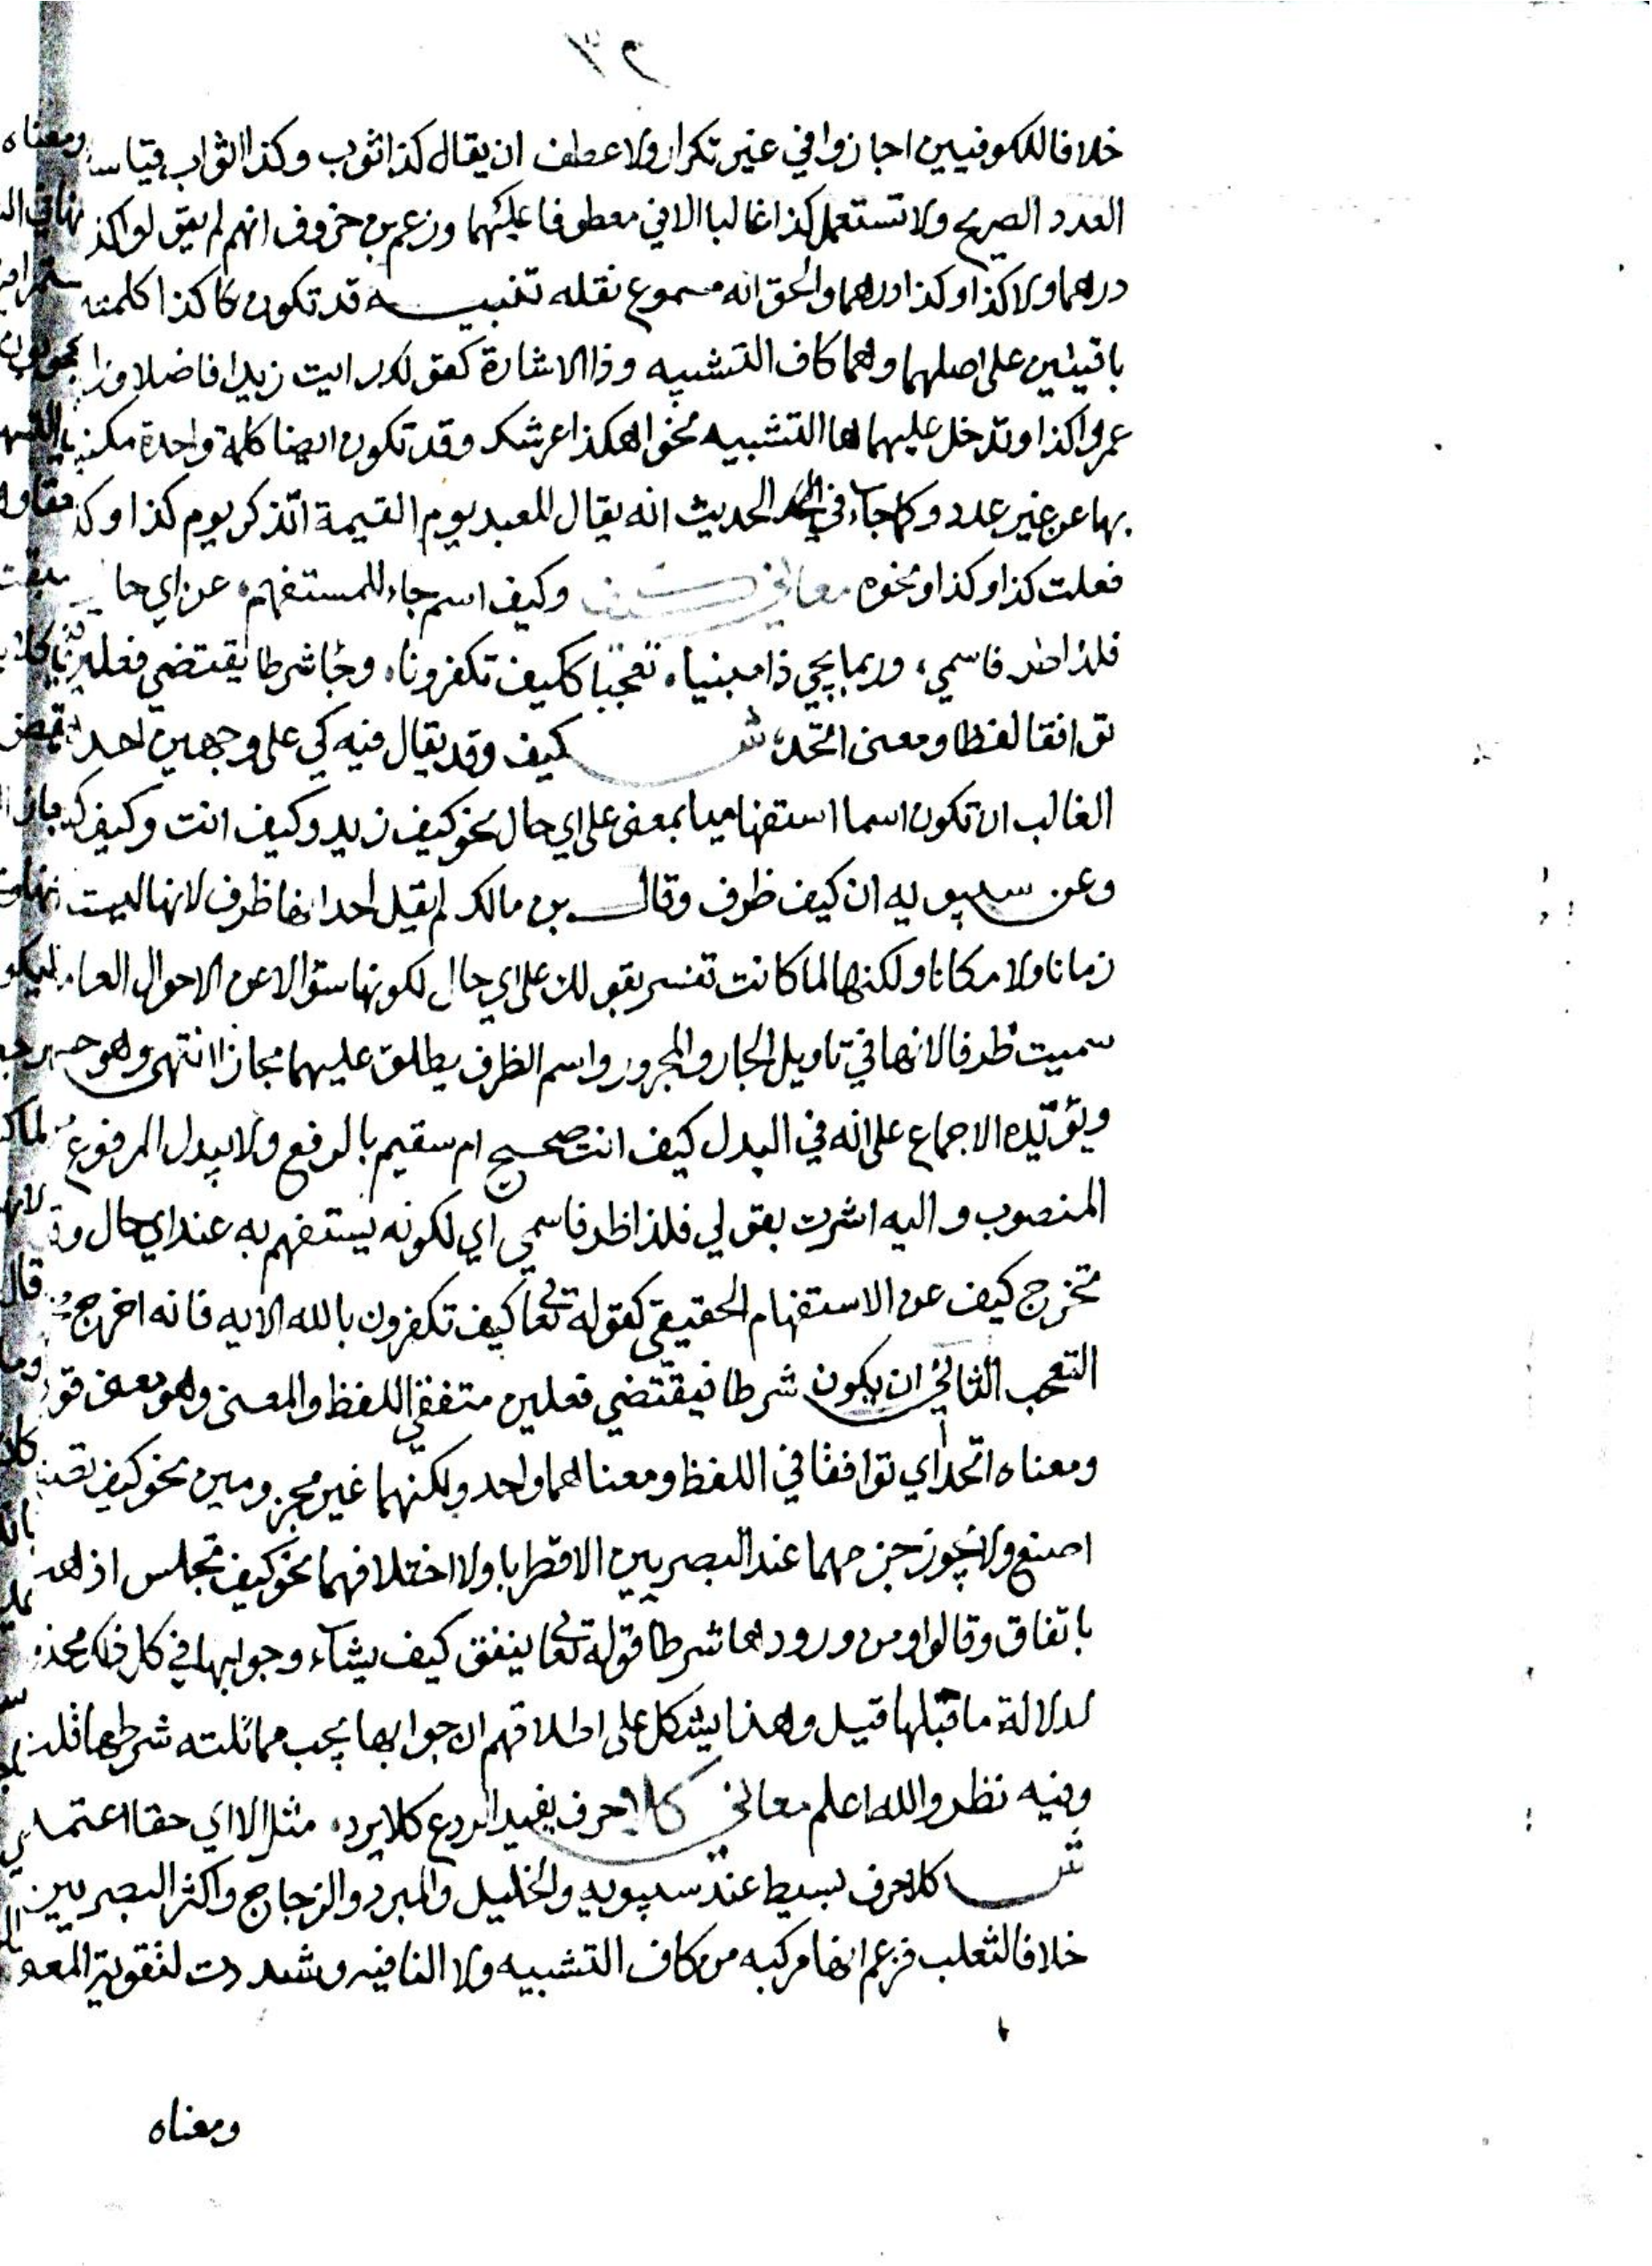 خلافا للكوفيين اجازوا في غير تكرار ولا عطف ان يقال كذا ثوب وكذا اثواب قياسا
العدد الصريح ولا تستعمل كذا غالبا الا في معطوفا عليهما وزعم بن خروف انهم لم يقولوا كذ
درهما ولا كذا وكذا درهما والحق انه مسموع نقله تنبيه قد تكون كاكذا كلمتين
باقيتين على اصلهما وهما كاف التشبيه وذا الاشارة كقولك رايت زيدا فاضلا ورا
عمروا كذا وتدخل عليهما ها التشبيه نحو اهكذا عرشك وقد تكون ايضا كلمة واحدة مكنيا
بها عن غير عدد وكما جاء في الحديث انه يقال للعبد يوم القيمة اتذكر يوم كذا وكذ
فعلت كذا وكذا ونحوه معاني كيف وكيف اسم جاء للمستفهم عن اي حا
فلذا ظرف اسمي وربما يجي ذا مبنيا تعجبا ككيف تكفرونا وجا شرطا يقتضي فعلين
توافقا لفظا ومعنى اتحد ش كيف وقد يقال فيه كي على وجهين احد
الغالب ان تكون اسما استفهاميا بمعنى على اي حال نحو كيف زيد وكيف انت وكيف
وعن سيبويه ان كيف ظرف وقال بن مالك لم يقل احد انها ظرف لانها ليست
زمانا ولا مكانا ولكنها لما كانت تفسر بقولك على اي حال لكونها سؤالا عن الاحوال العا
سميت ظرفا لانها في تاويل الجار والمجرور واسم الظرف يطلق عليهما مجازا انتهى وهو حسن
ويؤيده الاجماع على انه في البدل كيف انت صحيح ام سقيم بالرفع ولا يبدل المرفوع
المنصوب واليه اشرت بقولي فلذا ظرف اسمي اي لكونه يستفهم به عند اي حال و
تخرج كيف عن الاستفهام الحقيقي كقوله تعا كيف تكفرون بالله الايه فانه اخرج
التعجب الثاني ان يكون شرطا فيقتضي فعلين متفقي اللفظ والمعنى وهو معنى قو
ومعناه اتحد اي توافقا في اللفظ ومعناهما واحد ولكنهما غير مجزومين نحو كيف تصنع
اصنع ولا يجوز جزمهما عند البصريين الا قطربا ولا اختلافهما نحو كيف تجلس اذهب
باتفاق وقالوا ومن ورودها شرطا قوله تعا ينفق كيف يشآء وجوابها في كل ذلك محذو
لدلالة ما قبلها قيل وهذا يشكل على اطلاقهم ان جوابها يجب مماثلته شرطها قلت
وفيه نظر والله اعلم معاني كلا حرف يفيد الردع كلا يرد مثل الا اي حقا اعتمد
ش كلا حرف بسيط عند سيبويه والخليل والمبرد والزجاج واكثر البصريين
خلافا لثعلب فزعم انها مركبه من كاف التشبيه ولا النافيه وشددت لتقوية المعنى
ومعناه